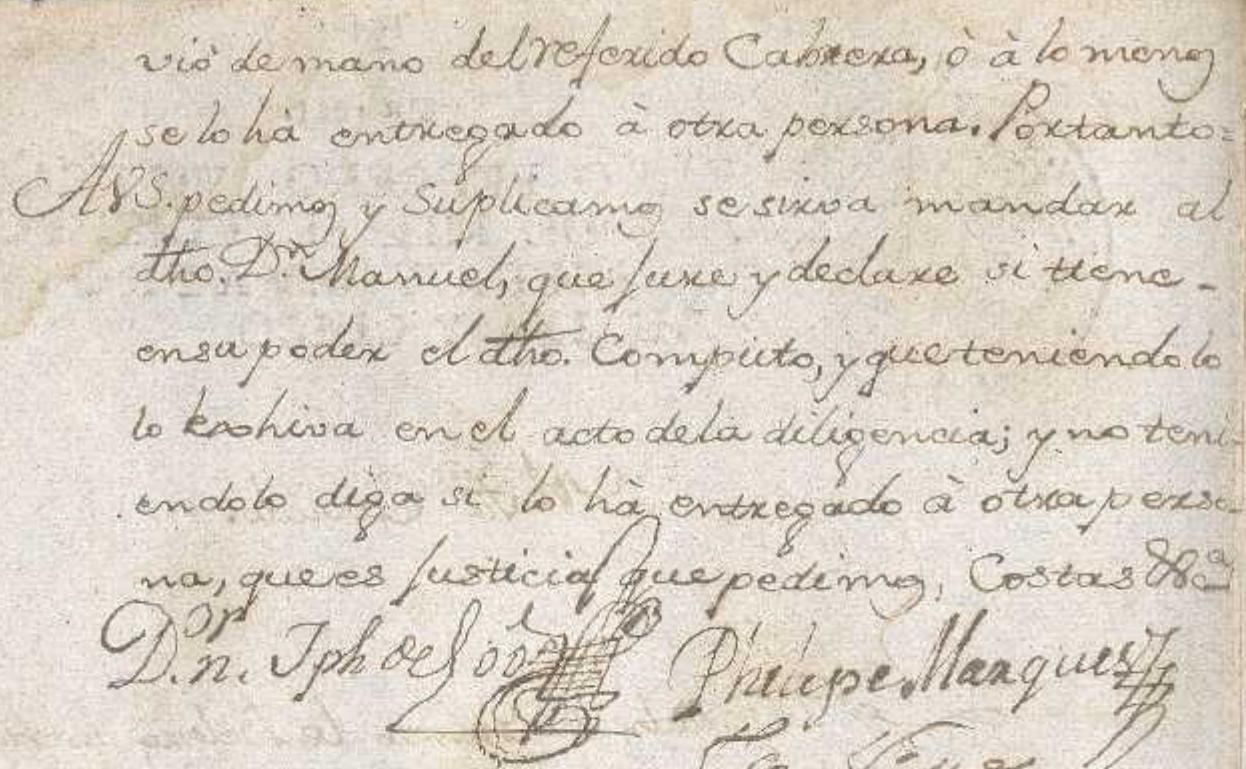 viò de mano del referido Cabrera, ò à lo menos
se lo hà entregado à otra persona. Portanto=
A VS. pedimos y Suplicamos se sirva mandar al
dho. Dn. Manuel, que jure y declare si tiene -
en su poder el dho. Computo, y que teniendolo
lo exhiva en el acto de la diligencia; y no teni-
endolo diga si lo hà entregado à otra perso-
na, que es justicia que pedimos, Costas &ca
Dor Dn. Jph de
Phelipe Marques